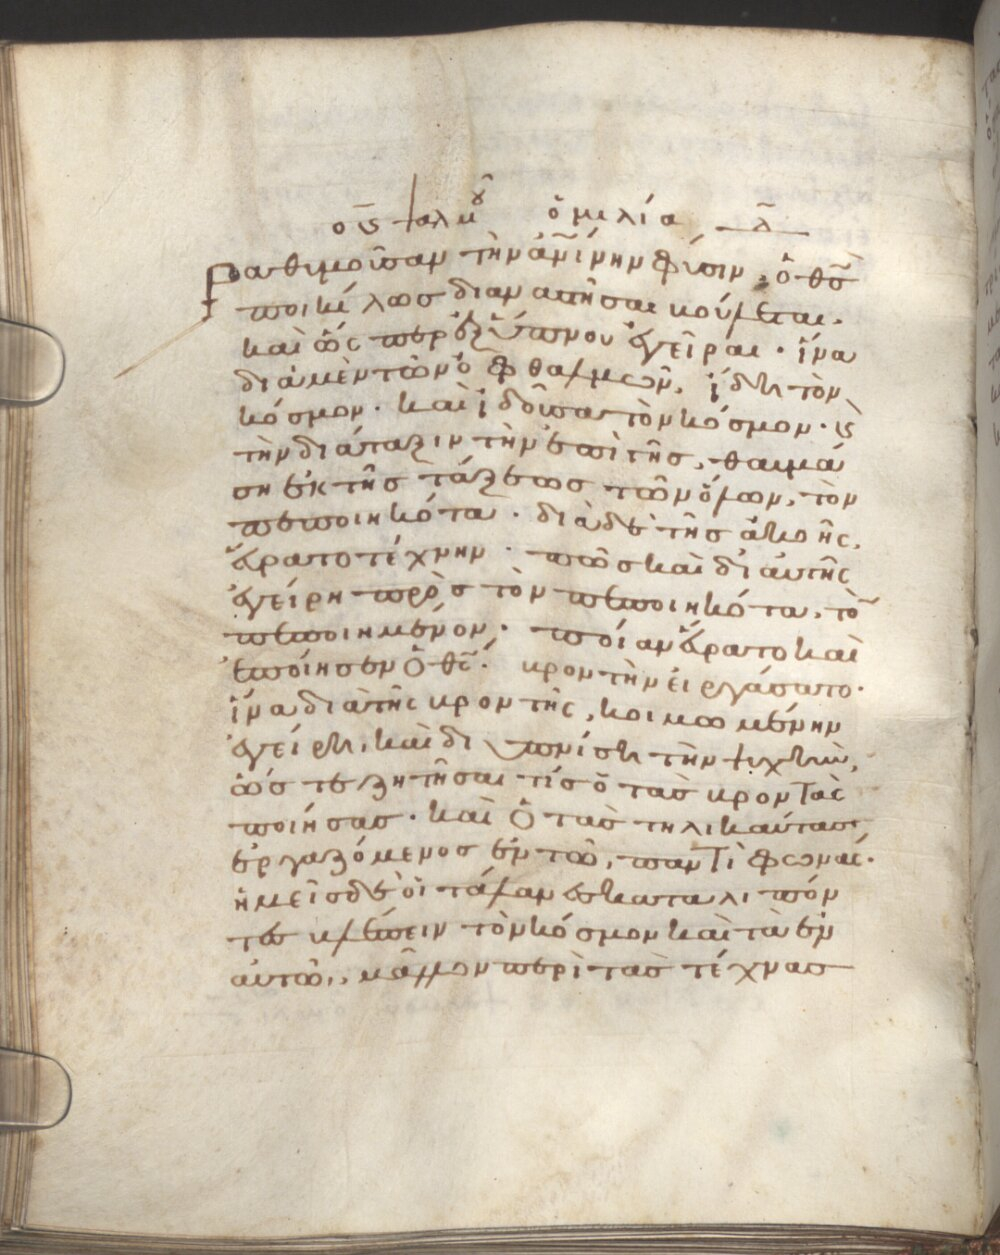 οϛ ψαλμοῦ ὁμιλία δ̄
Ραθυμοῦσαν τὴν ἀνίνην φύσιν, ὁ θς
ποικίλως διαναστῆσαι βούλεται·
καὶ ὥς περ ἐξ ὕπνου ἐγεῖραι· ἵνα
διὰ μὲν τῶν ὀφθαλμῶν, ἴδη τὸν
κόσμον· καὶ ἰδοῦσα τὸν κόσμον· ϗ
τὴν διάταξιν τὴν ἐπὶ γῆς, θαυμά
ση ἐκ τῆς τάξεως τῶν ὅλων, τὸν
πεποιηκότα· διὰ δὲ τῆς ἀκοῆς,
εὕρατο τέχνην· πῶς καὶ δι αὐτῆς
ἐγείρη πρὸς τὸν πεποιηκότα, τὸ
πεποιημένον· ποίαν εὕρατο καὶ
ἐποίησεν ὁ θς; βροντὴν εἰργάσατο·
ἵνα διὰ τῆς βροντῆς, κοιμωμένην
ἐγείρη, καὶ διυπνίση τὴν ψυχὴν,
ὥστε ζητῆσαι τίς ὁ τὰς βροντὰς
ποιήσας· καὶ ὁ τὰς τηλικαύτας
ἐργαζόμενος ἐν τῶ, παντὶ φωνάς·
ἡμεῖς δὲ οἱ τάλανες καταλιπόν
τες βλέπειν τὸν κόσμον καὶ τὰ ἐν
αὐτῶ, μᾶλλον περὶ τὰς τέχνας